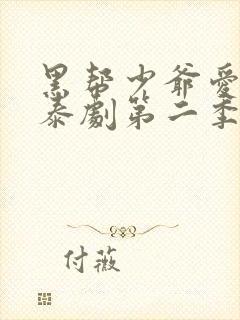 黑帮少爷爱
泰劇第二季
付薇